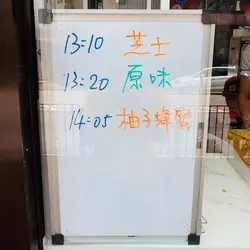 13:10 芝士
13:20 原味
14:05 柚子蜂蜜